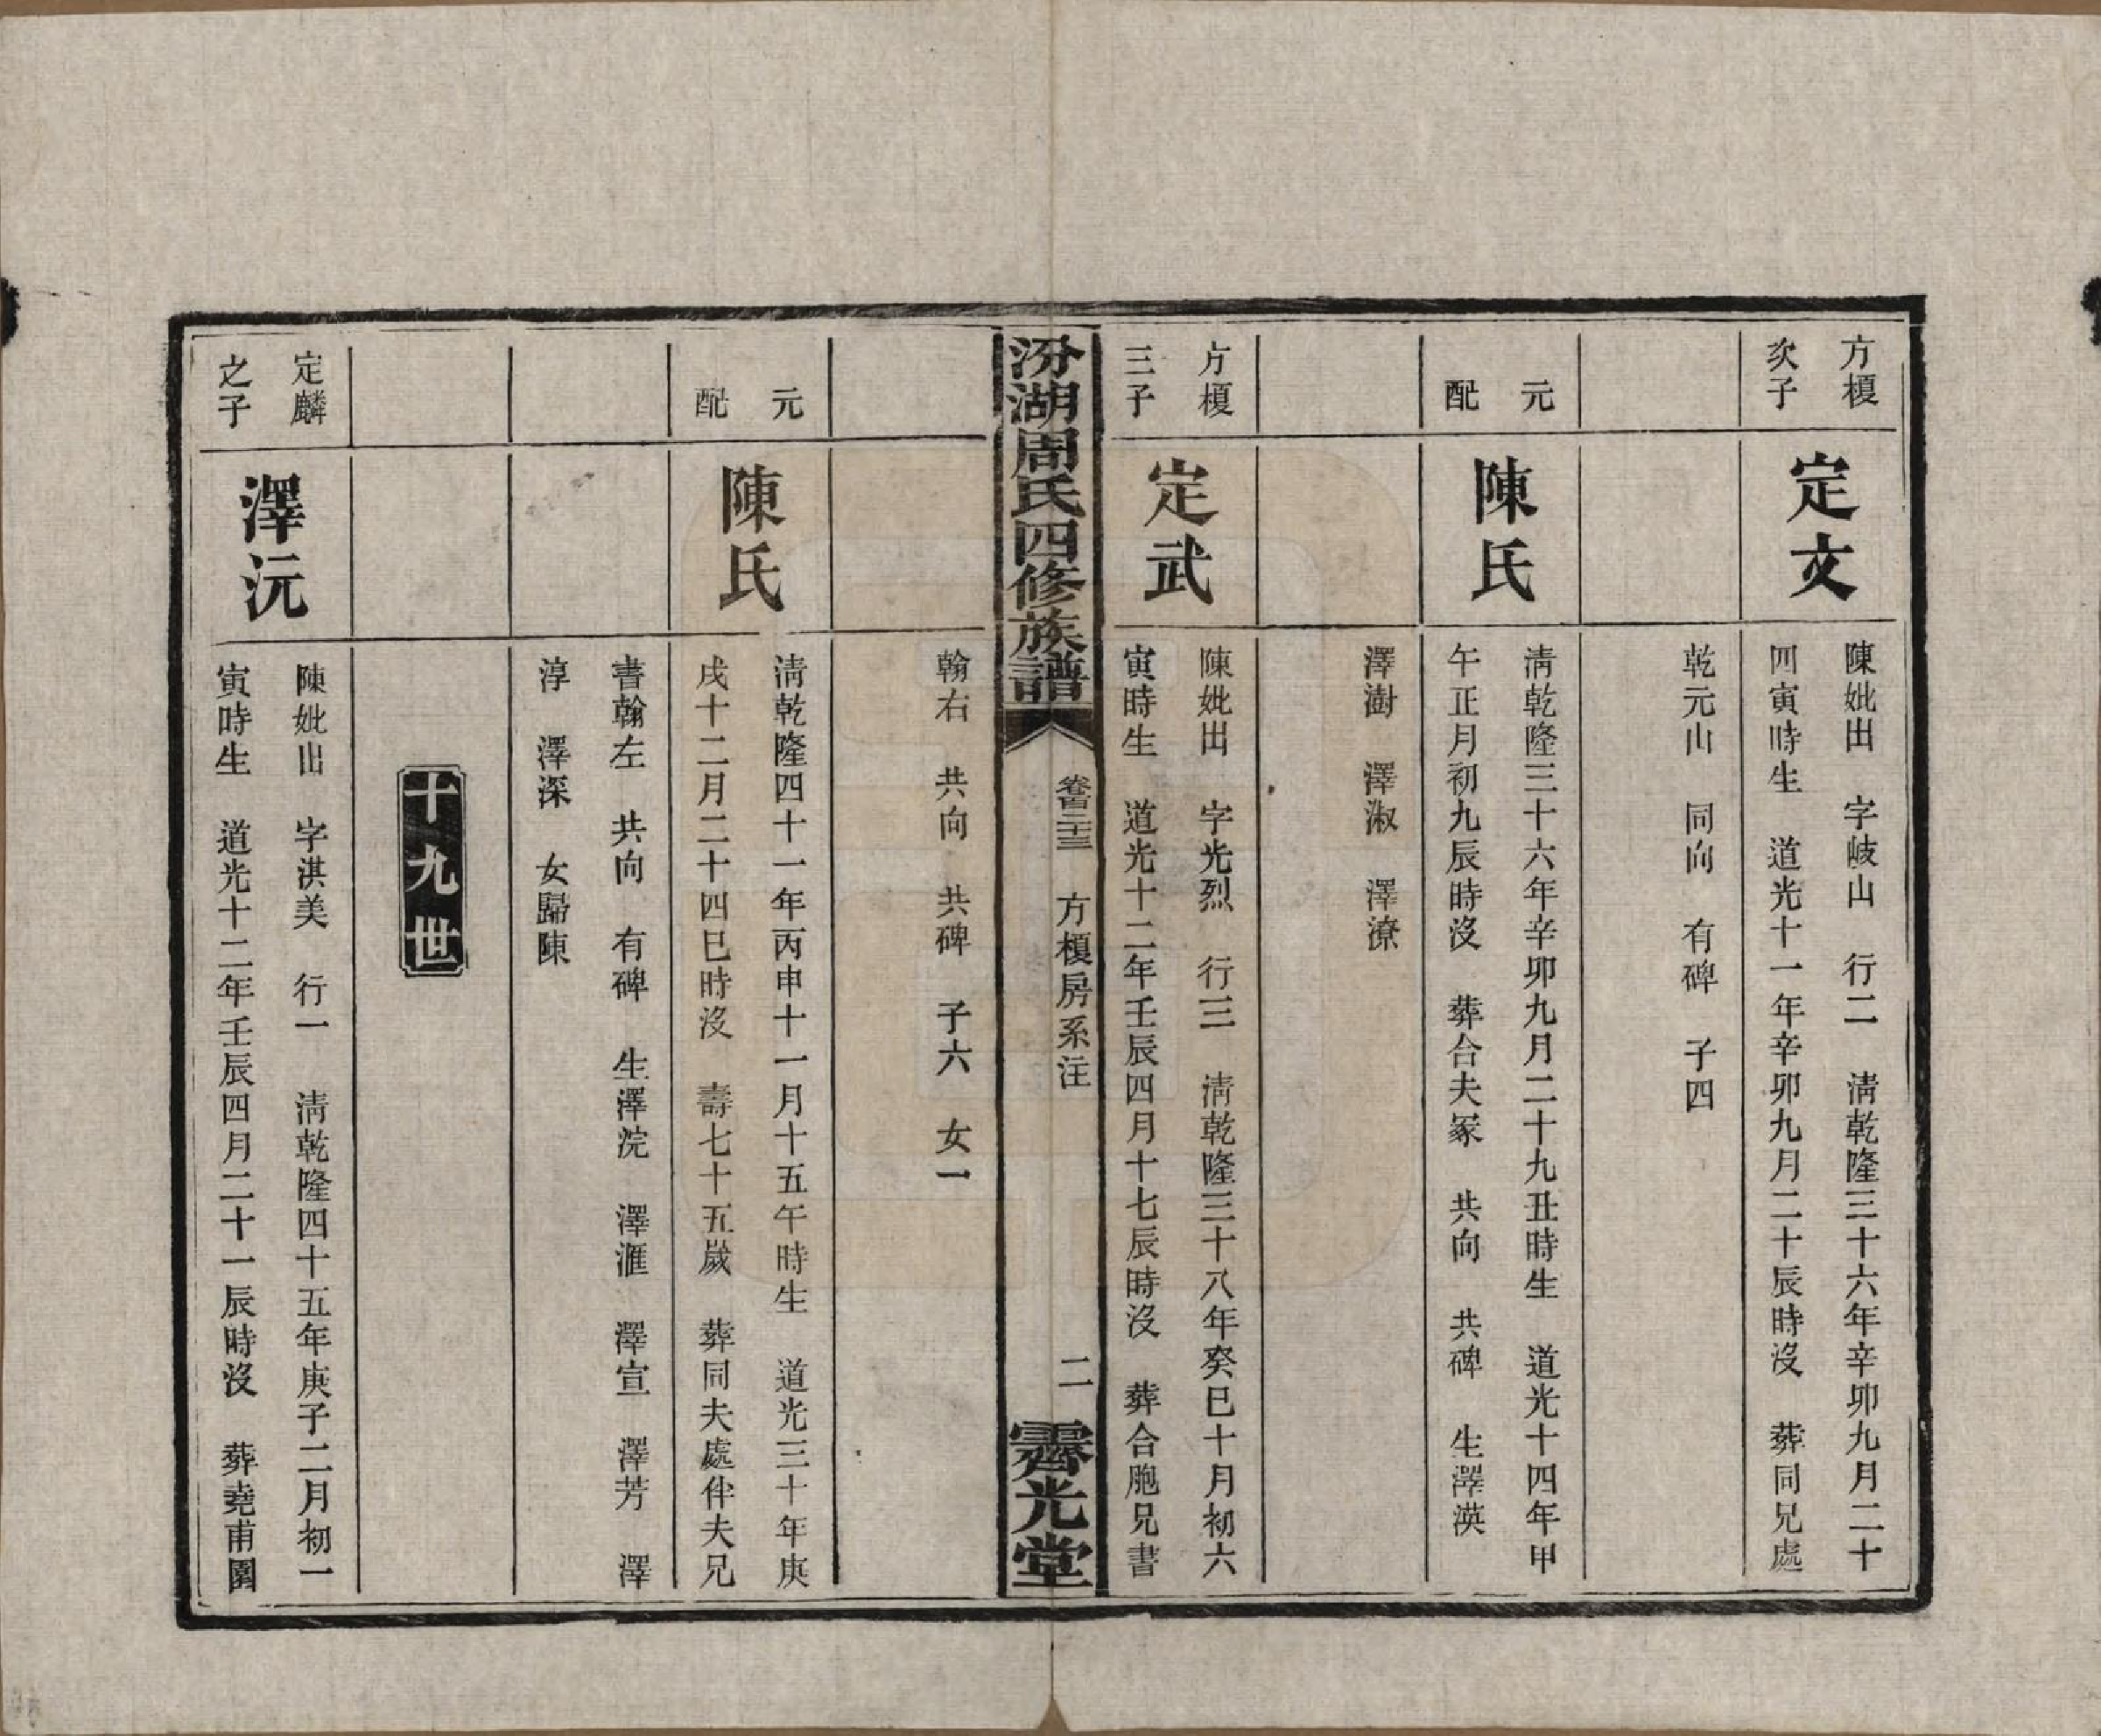 方榎
次子
定文
陳妣出　字岐山　行二　淸乾隆三十六年辛卯九月二十
四寅時生　道光十一年辛卯九月二十辰時沒　葬同兄處
乾元山　同向　有碑　子四
元
配
陳氏
淸乾隆三十六年辛卯九月二十九丑時生　道光十四年甲
午正月初九辰時沒　葬合夫冢　共向　共碑　生澤漢
澤澍　澤淑　澤潦
方榎
三子
定武
陳妣出　字光烈　行三　淸乾隆三十八年癸巳十月初六
寅時生　道光十二年壬辰四月十七辰時沒　葬合胞兄書
汾湖周氏四修族譜
方榎房系注
二
霽光堂
翰右　共向　共碑　子六　女一
元
配
陳氏
淸乾隆四十一年丙申十一月十五午時生　道光三十年庚
戌十二月二十四巳時沒　壽七十五歲　葬同夫處伴夫兄
書翰左　共向　有碑　生澤浣　澤滙　澤宣　澤芳　澤
淳　澤深　女歸陳
十九世
定麟
之子
澤沅
陳妣出　字淇美　行一　淸乾隆四十五年庚子二月初一
寅時生　道光十二年壬辰四月二十一辰時沒　葬堯甫園